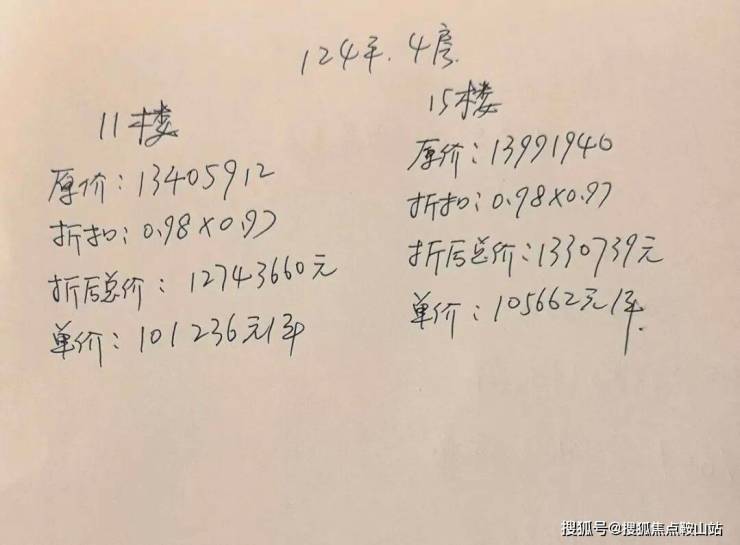 124平.4房.
11楼
原价：13405912
折扣：0.98×0.97
折后总价：12743660元
单价：101236元/平
15楼
原价：13991940
折扣：0.98×0.97
折后总价：1330739元
单价：105662元/平.
搜狐号@搜狐焦点鞍山站